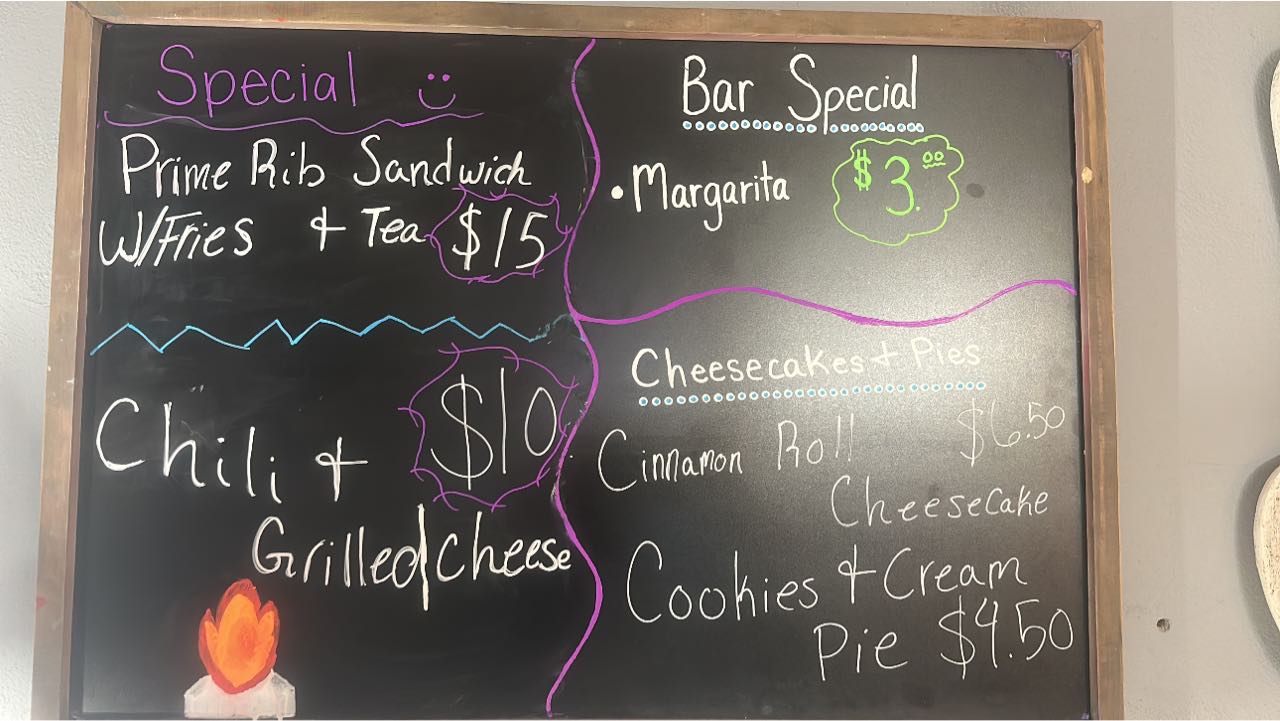 Special
Prime Rib Sandwich
W/Fries & Tea $15
Chili & $10
Grilled cheese
Bar Special
• Margarita $3.00
Cheesecakes & Pies
Cinnamon Roll $6.50
Cheesecake
Cookies & Cream
Pie $4.50